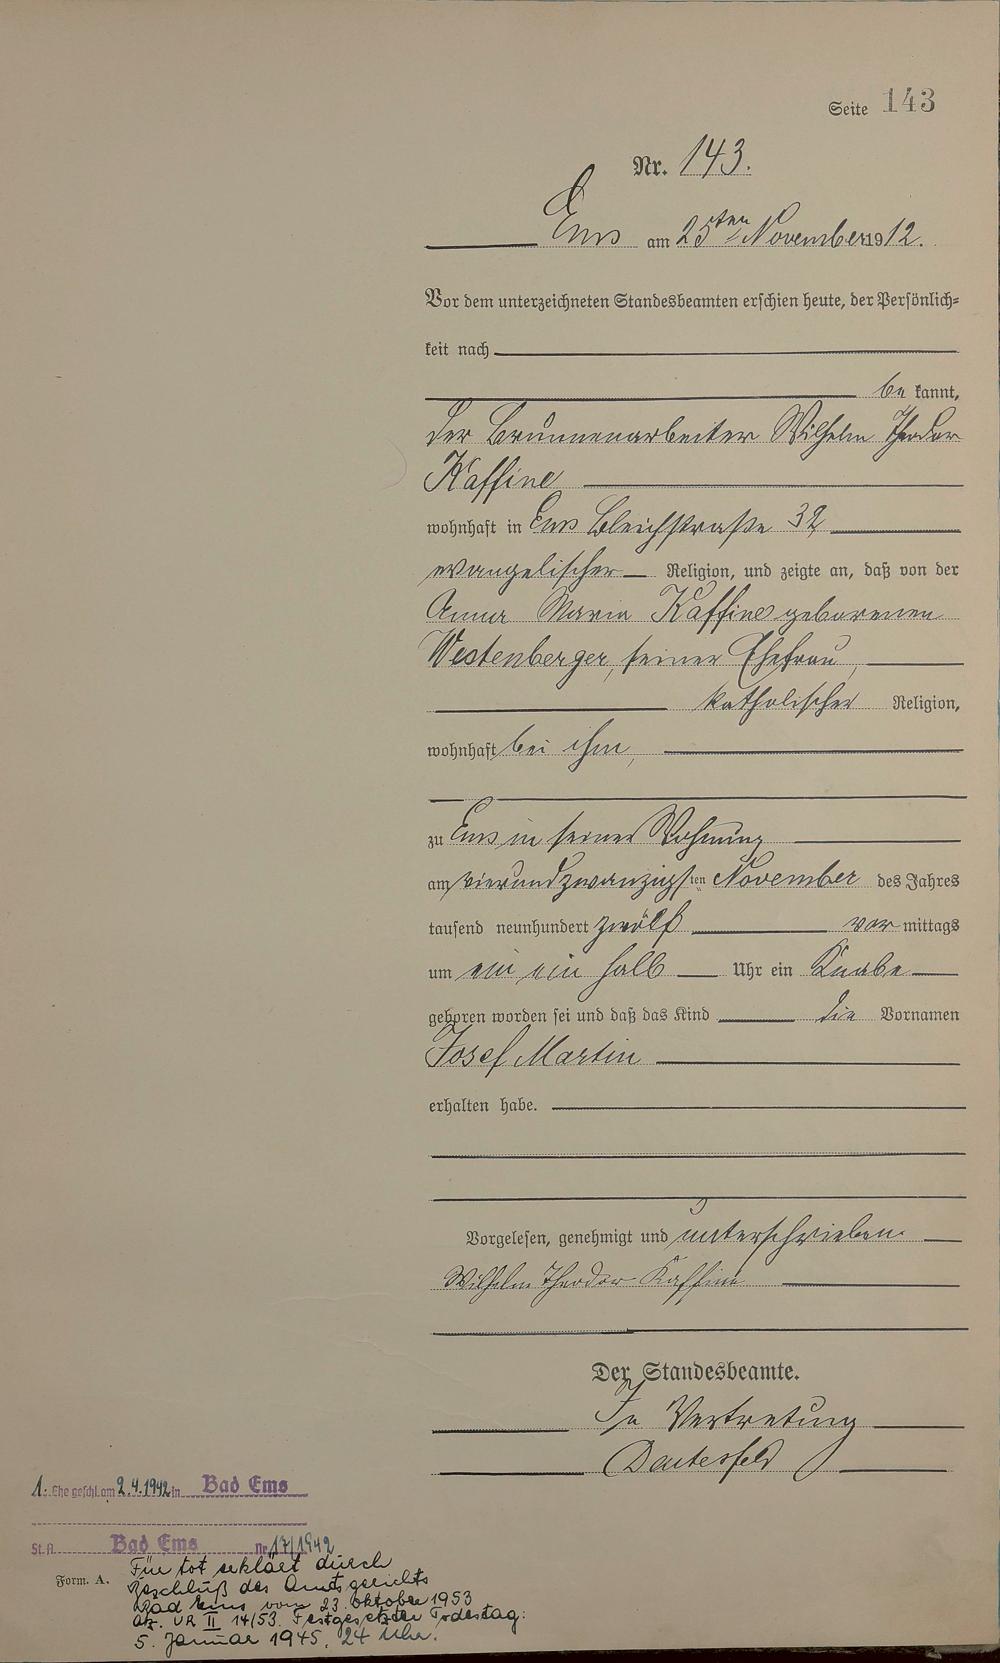 Seite 143
Nr. 143.
Ems am 25ten November 1912.
Vor dem unterzeichneten Standesbeamten erschien heute, der Persönlich=
keit nach
be kannt,
der Brunnenarbeiter Wilhelm Theodor
Kaffine
wohnhaft in Ems Bleichstraße 32
evangelischer Religion, und zeigte an, daß von der
Anna Maria Kaffine geborenen
Westenberger, seiner Ehefrau,
katholischer Religion,
wohnhaft bei ihm,
zu Ems in seiner Wohnung
am vierundzwanzigsten November des Jahres
tausend neunhundert zwölf vor mittags
um ein ein halb Uhr ein Knabe
geboren worden sei und daß das Kind die Vornamen
Josef Martin
erhalten habe.
Vorgelesen, genehmigt und unterschrieben.
Wilhelm Theodor Kaffine
Der Standesbeamte.
In Vertretung
1. Ehe geschl. am 2.4.1942 in Bad Ems
St. A. Bad Ems Nr. 17/1942
Form. A.
Für tot erklärt durch
Beschluß des Amtsgerichts
Bad Ems vom 23. Oktober 1953
Az. UR II 14/53. Festgesetzter Todestag:
5. Januar 1945, 24 Uhr.